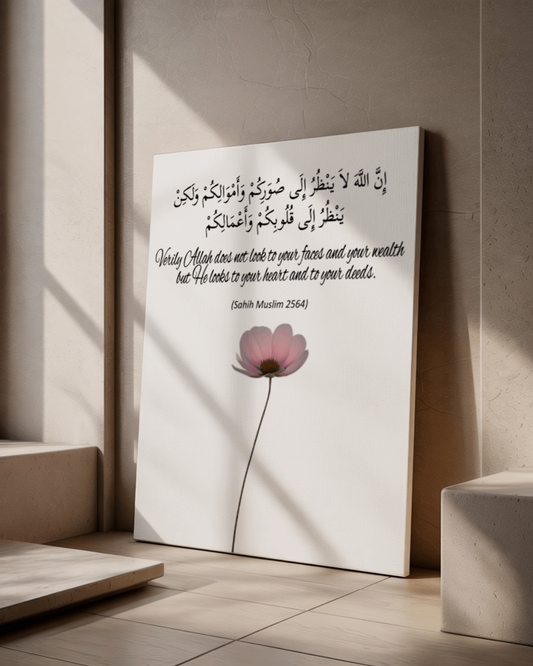 إِنَّ اللَّهَ لاَ يَنْظُرُ إِلَى صُوَرِكُمْ وَأَمْوَالِكُمْ وَلَكِنْ
يَنْظُرُ إِلَى قُلُوبِكُمْ وَأَعْمَالِكُمْ
Verily Allah does not look to your faces and your wealth
but He looks to your heart and to your deeds.
(Sahih Muslim 2564)